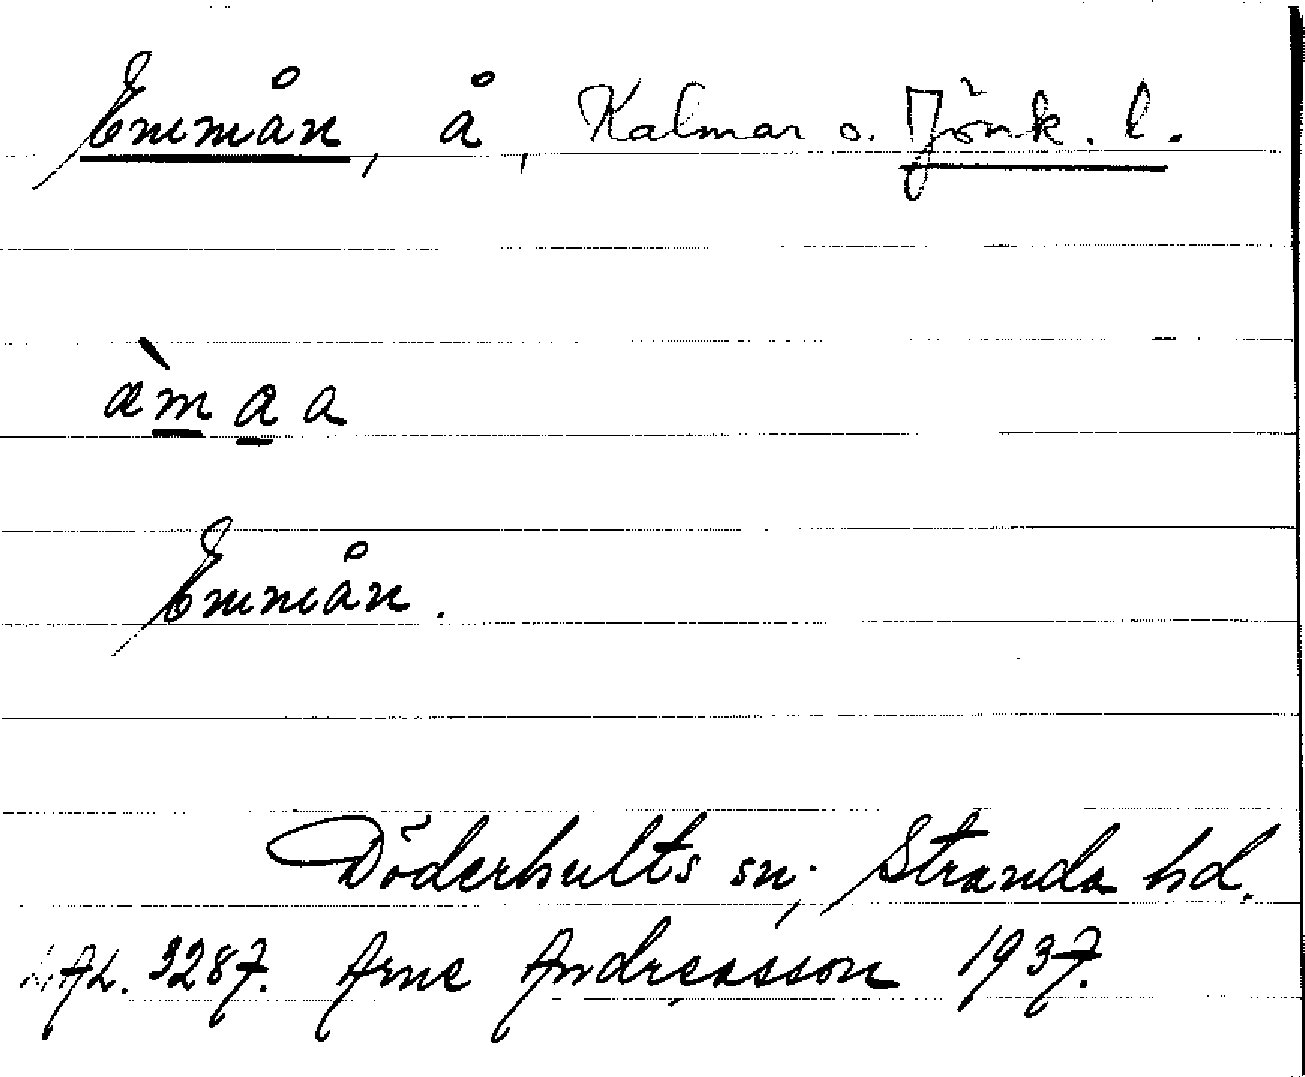 Emmån, å, Kalmar o. Jönk. l.
æ̀m a a
Emmån.
Döderhults sn; Stranda hd.
3287. Arne Andreasson 1937.